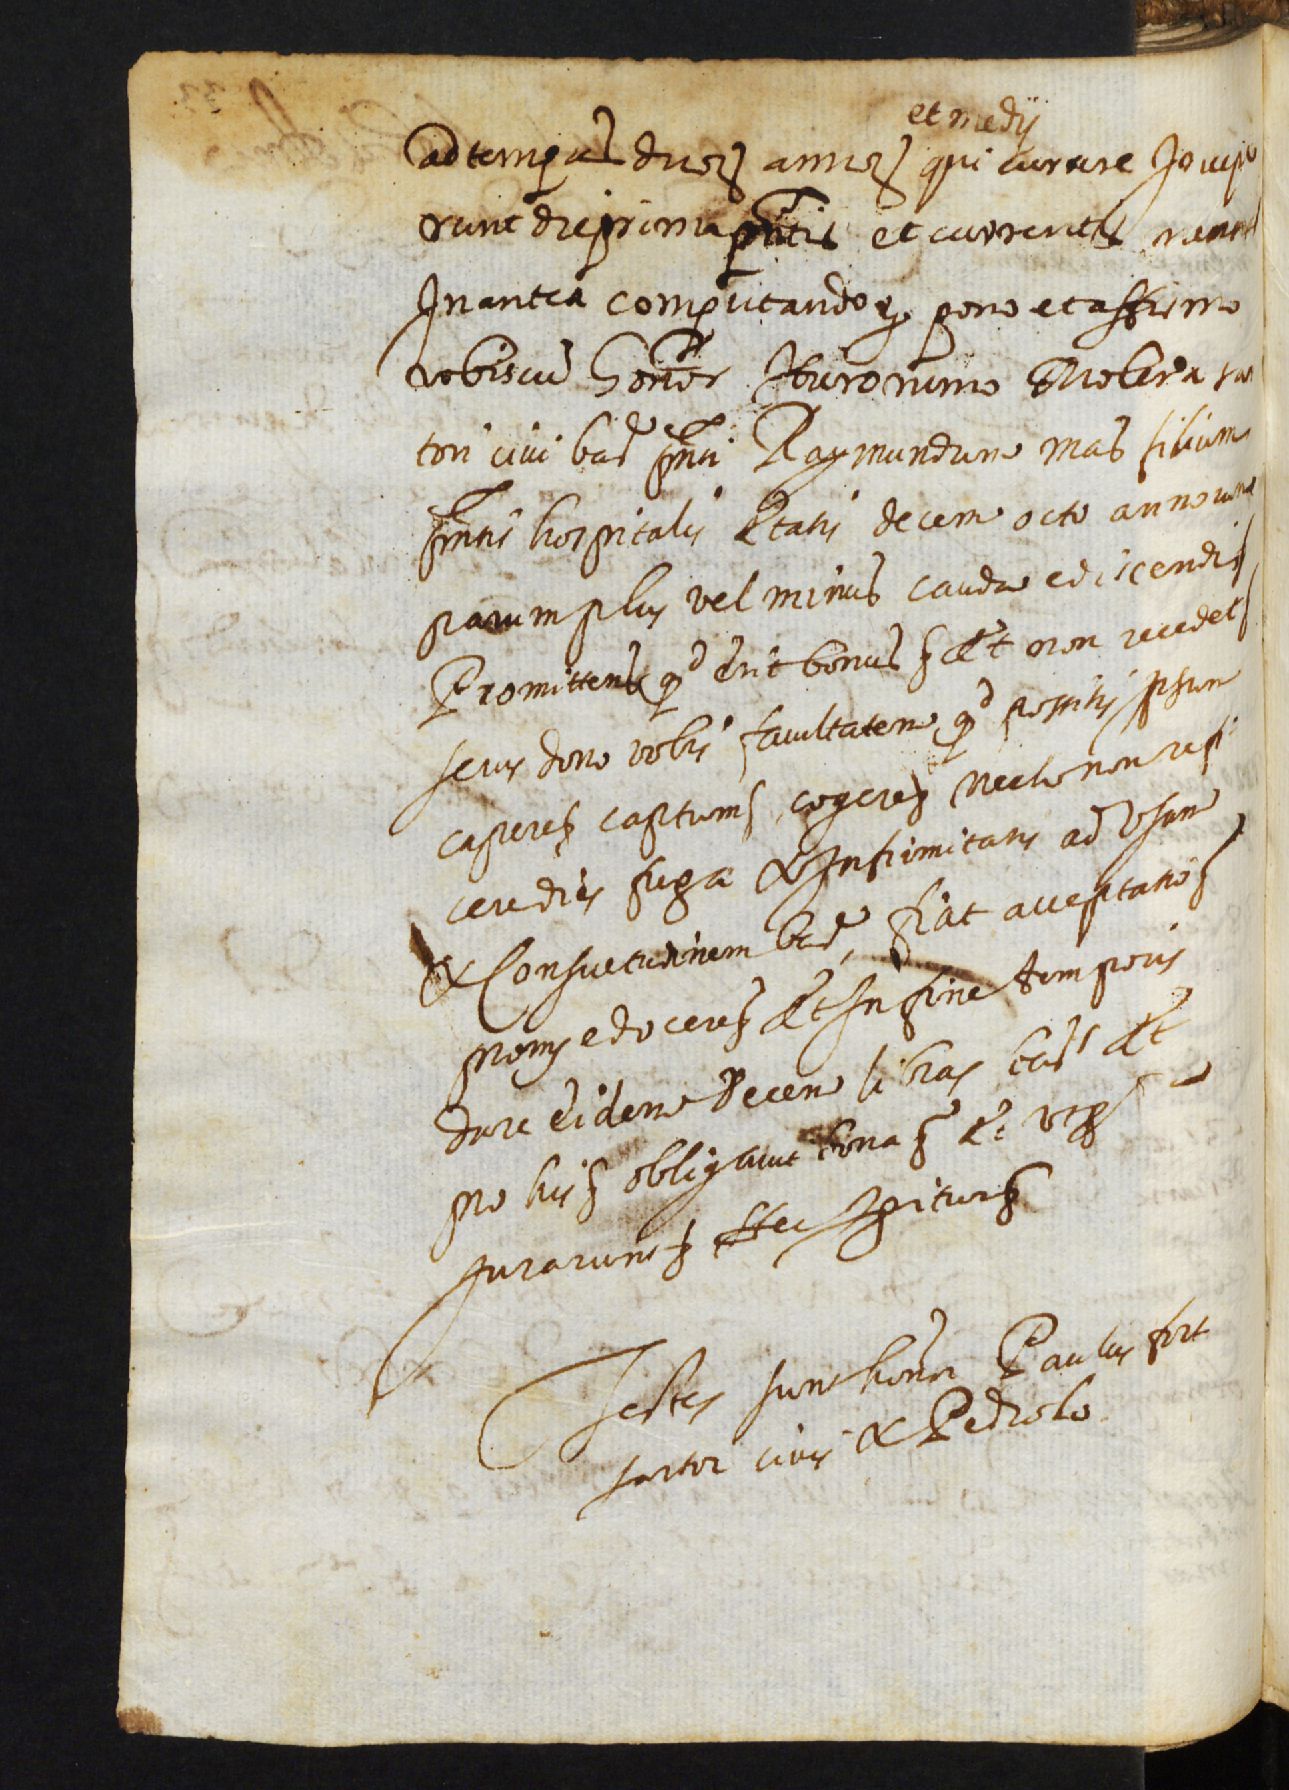 et medÿ
ad tempus duoꝝ annoꝝ qui currere Incepe
runt die prima pntis et currentis mensis
In antea computandoꝝ pono et affirmo
vobiscum Honor Hieronimo Molera sar
tori civi bar pnti Raymundum Mas filium
pntis hospitalis Etatis decem octo annorum
parum plus vel minus causa ediscendi
Promittens qd erit bonus et non recedet
secus dono vobis facultatem qd possitis ipsum
capere captum cogere necnon refi
cere dies fuga et Infirmitatis ad Usum
& Consuetudinem bar, fiat acceptatio
promi edocere et In fine temporis
dare eidem decem libras bar et
pro his obligavit bona et utqs
Jurarunt Hec igitur
Testes sunt honor Paulus fort
sartor civis & Pedrolo